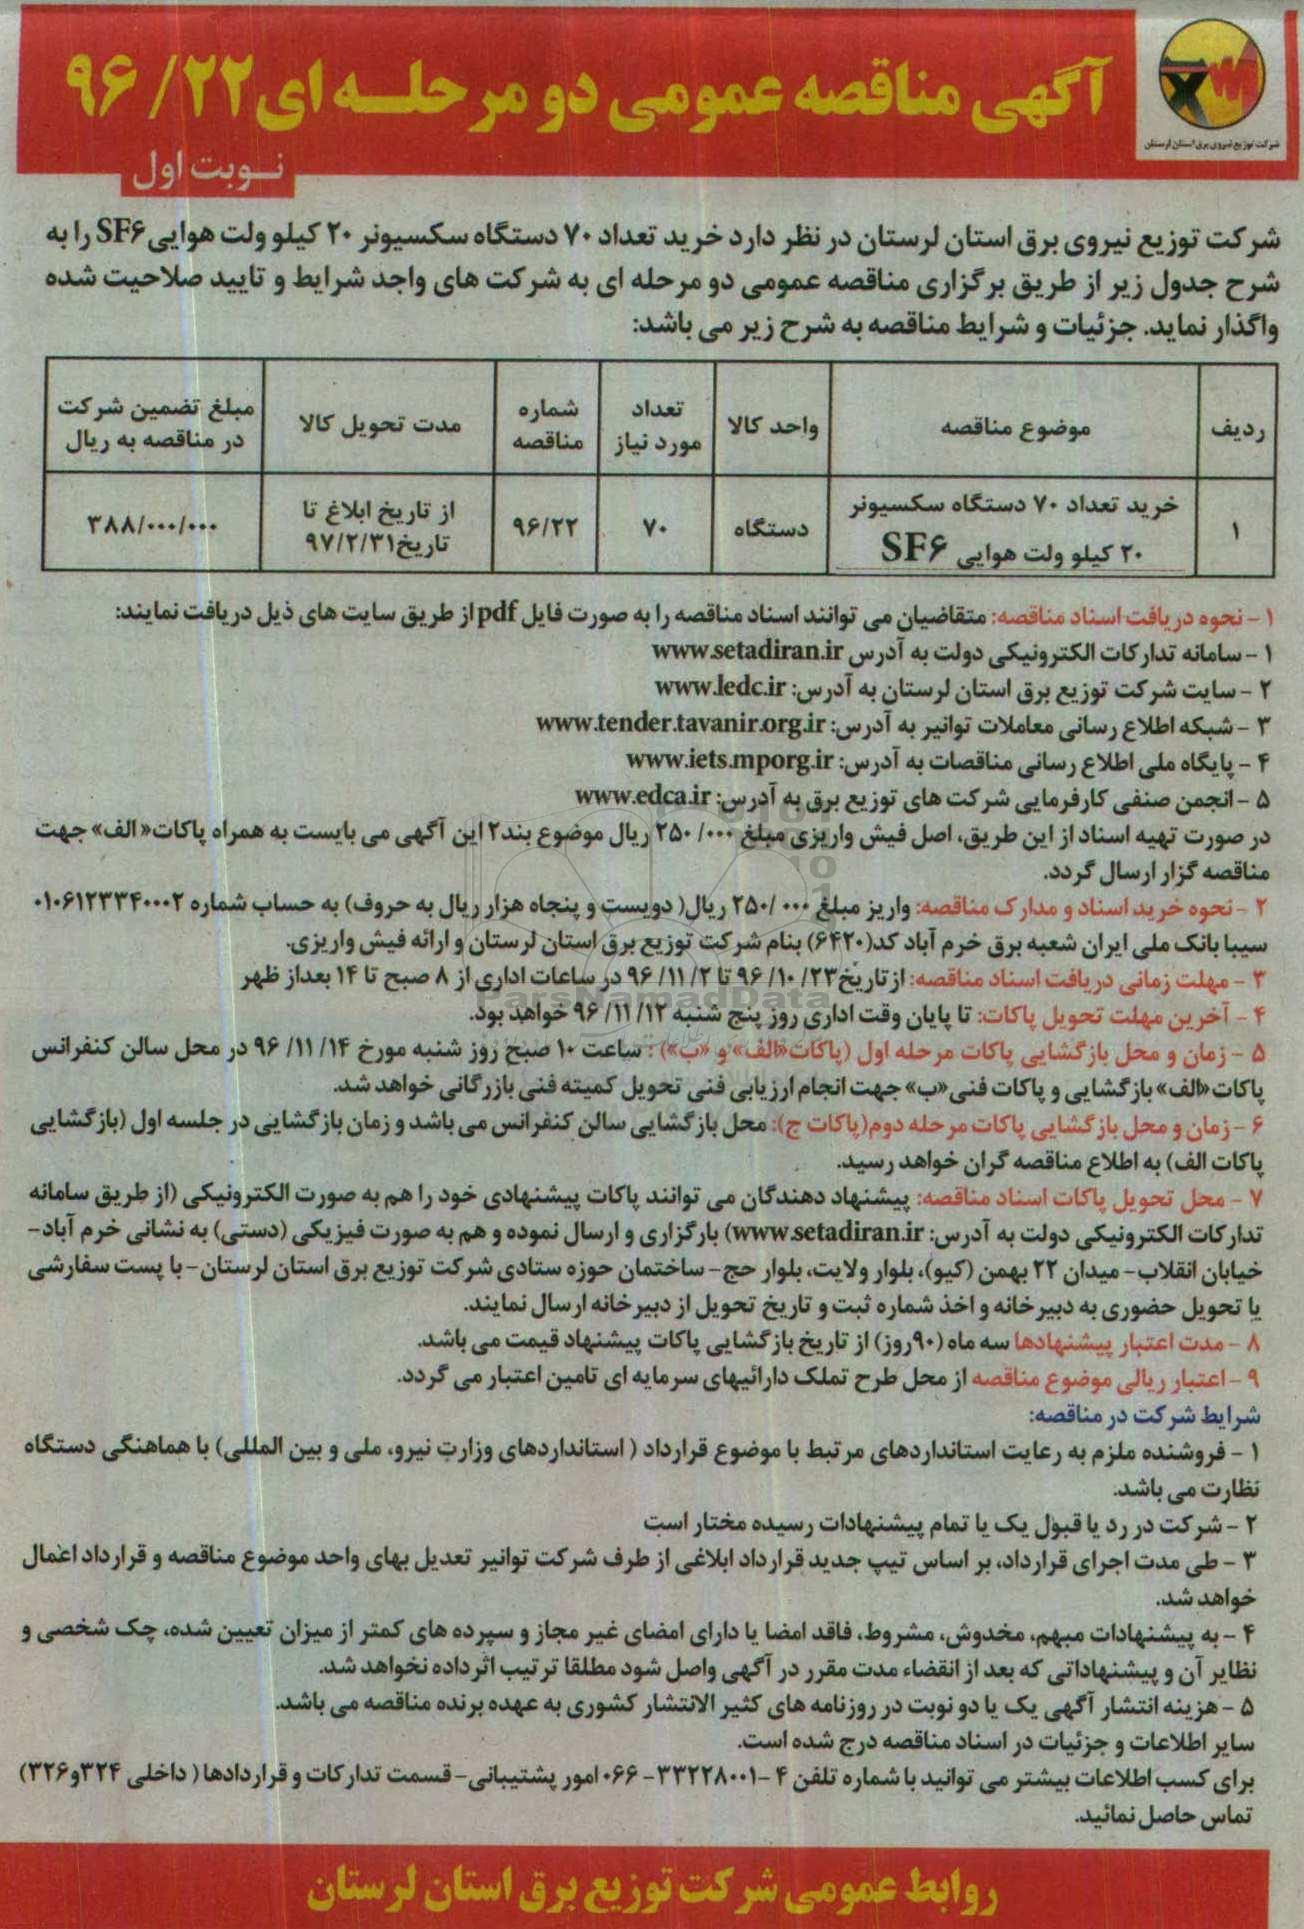 آگهی مناقصه عمومی دو مرحله ای ۹۶/۲۲
شرکت توزیع نیروی برق استان لرستان
نوبت اول
شرکت توزیع نیروی برق استان لرستان در نظر دارد خرید تعداد ۷۰ دستگاه سکسیونر ۲۰ کیلو ولت هوایی SF۶ را به
شرح جدول زیر از طریق برگزاری مناقصه عمومی دو مرحله ای به شرکت های واجد شرایط و تایید صلاحیت شده
واگذار نماید. جزئیات و شرایط مناقصه به شرح زیر می باشد:
ردیف | موضوع مناقصه | واحد کالا | تعداد مورد نیاز | شماره مناقصه | مدت تحویل کالا | مبلغ تضمین شرکت در مناقصه به ریال
۱ | خرید تعداد ۷۰ دستگاه سکسیونر ۲۰ کیلو ولت هوایی SF۶ | دستگاه | ۷۰ | ۹۶/۲۲ | از تاریخ ابلاغ تا تاریخ ۹۷/۲/۳۱ | ۳۸۸/۰۰۰/۰۰۰
۱ - نحوه دریافت اسناد مناقصه: متقاضیان می توانند اسناد مناقصه را به صورت فایل pdf از طریق سایت های ذیل دریافت نمایند:
۱ - سامانه تدارکات الکترونیکی دولت به آدرس www.setadiran.ir
۲ - سایت شرکت توزیع برق استان لرستان به آدرس: www.ledc.ir
۳ - شبکه اطلاع رسانی معاملات توانیر به آدرس: www.tender.tavanir.org.ir
۴ - پایگاه ملی اطلاع رسانی مناقصات به آدرس: www.iets.mporg.ir
۵ - انجمن صنفی کارفرمایی شرکت های توزیع برق به آدرس: www.edca.ir
در صورت تهیه اسناد از این طریق، اصل فیش واریزی مبلغ ۲۵۰/۰۰۰ ریال موضوع بند۲ این آگهی می بایست به همراه پاکات« الف» جهت
مناقصه گزار ارسال گردد.
۲ - نحوه خرید اسناد و مدارک مناقصه: واریز مبلغ ۲۵۰/۰۰۰ ریال( دویست و پنجاه هزار ریال به حروف) به حساب شماره ۰۱۰۶۱۲۳۳۴۰۰۰۲
سیبا بانک ملی ایران شعبه برق خرم آباد کد(۶۴۲۰) بنام شرکت توزیع برق استان لرستان و ارائه فیش واریزی.
۳ - مهلت زمانی دریافت اسناد مناقصه: از تاریخ ۹۶/۱۰/۲۳ تا ۹۶/۱۱/۲ در ساعات اداری از ۸ صبح تا ۱۴ بعداز ظهر
ParsNamadData
۴ - آخرین مهلت تحویل پاکات: تا پایان وقت اداری روز پنج شنبه ۹۶/۱۱/۱۲ خواهد بود.
۵ - زمان و محل بازگشایی پاکات مرحله اول (پاکات«الف» و «ب») : ساعت ۱۰ صبح روز شنبه مورخ ۹۶/۱۱/۱۴ در محل سالن کنفرانس
پاکات«الف» بازگشایی و پاکات فنی«ب» جهت انجام ارزیابی فنی تحویل کمیته فنی بازرگانی خواهد شد.
۶ - زمان و محل بازگشایی پاکات مرحله دوم(پاکات ج): محل بازگشایی سالن کنفرانس می باشد و زمان بازگشایی در جلسه اول (بازگشایی
پاکات الف) به اطلاع مناقصه گران خواهد رسید.
۷ - محل تحویل پاکات اسناد مناقصه: پیشنهاد دهندگان می توانند پاکات پیشنهادی خود را هم به صورت الکترونیکی (از طریق سامانه
تدارکات الکترونیکی دولت به آدرس: www.setadiran.ir) بارگزاری و ارسال نموده و هم به صورت فیزیکی (دستی) به نشانی خرم آباد-
خیابان انقلاب- میدان ۲۲ بهمن (کیو)، بلوار ولایت، بلوار حج- ساختمان حوزه ستادی شرکت توزیع برق استان لرستان- با پست سفارشی
یا تحویل حضوری به دبیرخانه و اخذ شماره ثبت و تاریخ تحویل از دبیرخانه ارسال نمایند.
۸ - مدت اعتبار پیشنهادها سه ماه (۹۰روز) از تاریخ بازگشایی پاکات پیشنهاد قیمت می باشد.
۹ - اعتبار ریالی موضوع مناقصه از محل طرح تملک دارائیهای سرمایه ای تامین اعتبار می گردد.
شرایط شرکت در مناقصه:
۱ - فروشنده ملزم به رعایت استانداردهای مرتبط با موضوع قرارداد ( استانداردهای وزارت نیرو، ملی و بین المللی) با هماهنگی دستگاه
نظارت می باشد.
۲ - شرکت در رد یا قبول یک یا تمام پیشنهادات رسیده مختار است
۳ - طی مدت اجرای قرارداد، بر اساس تیپ جدید قرارداد ابلاغی از طرف شرکت توانیر تعدیل بهای واحد موضوع مناقصه و قرارداد اعمال
خواهد شد.
۴ - به پیشنهادات مبهم، مخدوش، مشروط، فاقد امضا یا دارای امضای غیر مجاز و سپرده های کمتر از میزان تعیین شده، چک شخصی و
نظایر آن و پیشنهاداتی که بعد از انقضاء مدت مقرر در آگهی واصل شود مطلقا ترتیب اثر داده نخواهد شد.
۵ - هزینه انتشار آگهی یک یا دو نوبت در روزنامه های کثیر الانتشار کشوری به عهده برنده مناقصه می باشد.
سایر اطلاعات و جزئیات در اسناد مناقصه درج شده است.
برای کسب اطلاعات بیشتر می توانید با شماره تلفن ۴ -۳۳۲۲۸۰۰۱- ۰۶۶ امور پشتیبانی- قسمت تدارکات و قراردادها ( داخلی ۳۲۴و۳۲۶)
تماس حاصل نمائید.
روابط عمومی شرکت توزیع برق استان لرستان